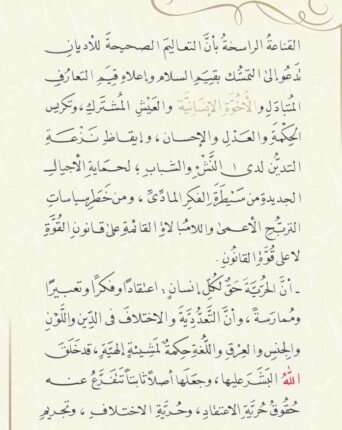 القناعةُ الراسخةُ بأنَّ التعاليمَ الصحيحةَ للأديانِ
تَدعُو إلى التمسُّك بقيمِ السلام وإعلاءِ قيمِ التعارُفِ
المُتبادَلِ والأُخُوَّةِ الإنسانيَّةِ والعَيْشِ المُشتَرَكِ، وتكريس
الحِكْمَةِ والعَدْلِ والإحسانِ، وإيقاظِ نَزْعَةِ
التديُّن لدى النَّشْءِ والشبابِ؛ لحمايةِ الأجيالِ
الجديدةِ من سَيْطَرَةِ الفكرِ المادِّيِّ، ومن خَطَرِ سياسات
التربُّح الأعمى واللامُبالاةِ القائمةِ على قانونِ القُوَّةِ
لا على قُوَّةِ القانُونِ.
- أنَّ الحُرِّيَّةَ حَقٌّ لكُلِّ إنسانٍ: اعتقادًا وفكرًا وتعبيرًا
ومُمارَسةً، وأنَّ التَّعدُّدِيَّةَ والاختلافَ في الدِّينِ واللَّوْنِ
والجنسِ والعِرْقِ واللُّغةِ حِكمةٌ لمَشِيئةٍ إلهيَّةٍ، قد خَلَقَ
اللهُ البشَرَ عليها، وجعَلَها أصلًا ثابتًا تَتَفرَّعُ عنه
حُقُوقُ حُريَّةِ الاعتقادِ، وحريَّةِ الاختلافِ، وتجريمِ